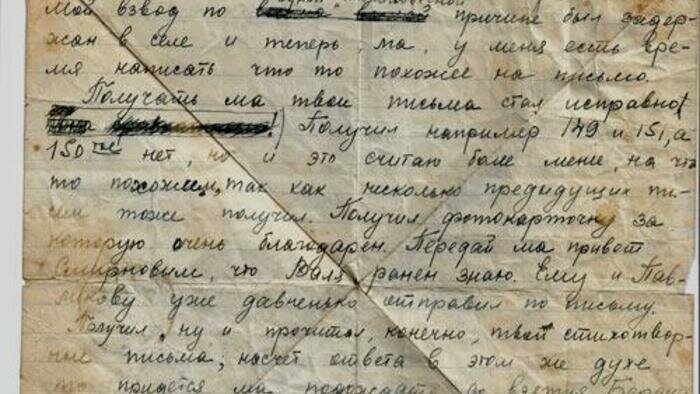 Мой взвод по причине был задер-
жан в селе и теперь, ма, у меня есть вре-
мя написать что то похожее на письмо.
Получать ма твои письма стал исправно!
Получил например 149 и 151, а
150 ое нет, но и это считаю боле мене, на что
то похожем, так как несколько предыдущих пи-
сем тоже получил. Получил фотокарточку за
которую очень благодарен. Передай ма привет
Смирновым, что Валя ранен знаю. Ему и Пав-
ликову уже давненько отправил по письму.
Получил, ну и прочитал, конечно, твои стихотвор-
ные письма; насчет ответа в этом же духе
то придется ма подождать до взятия Берлина